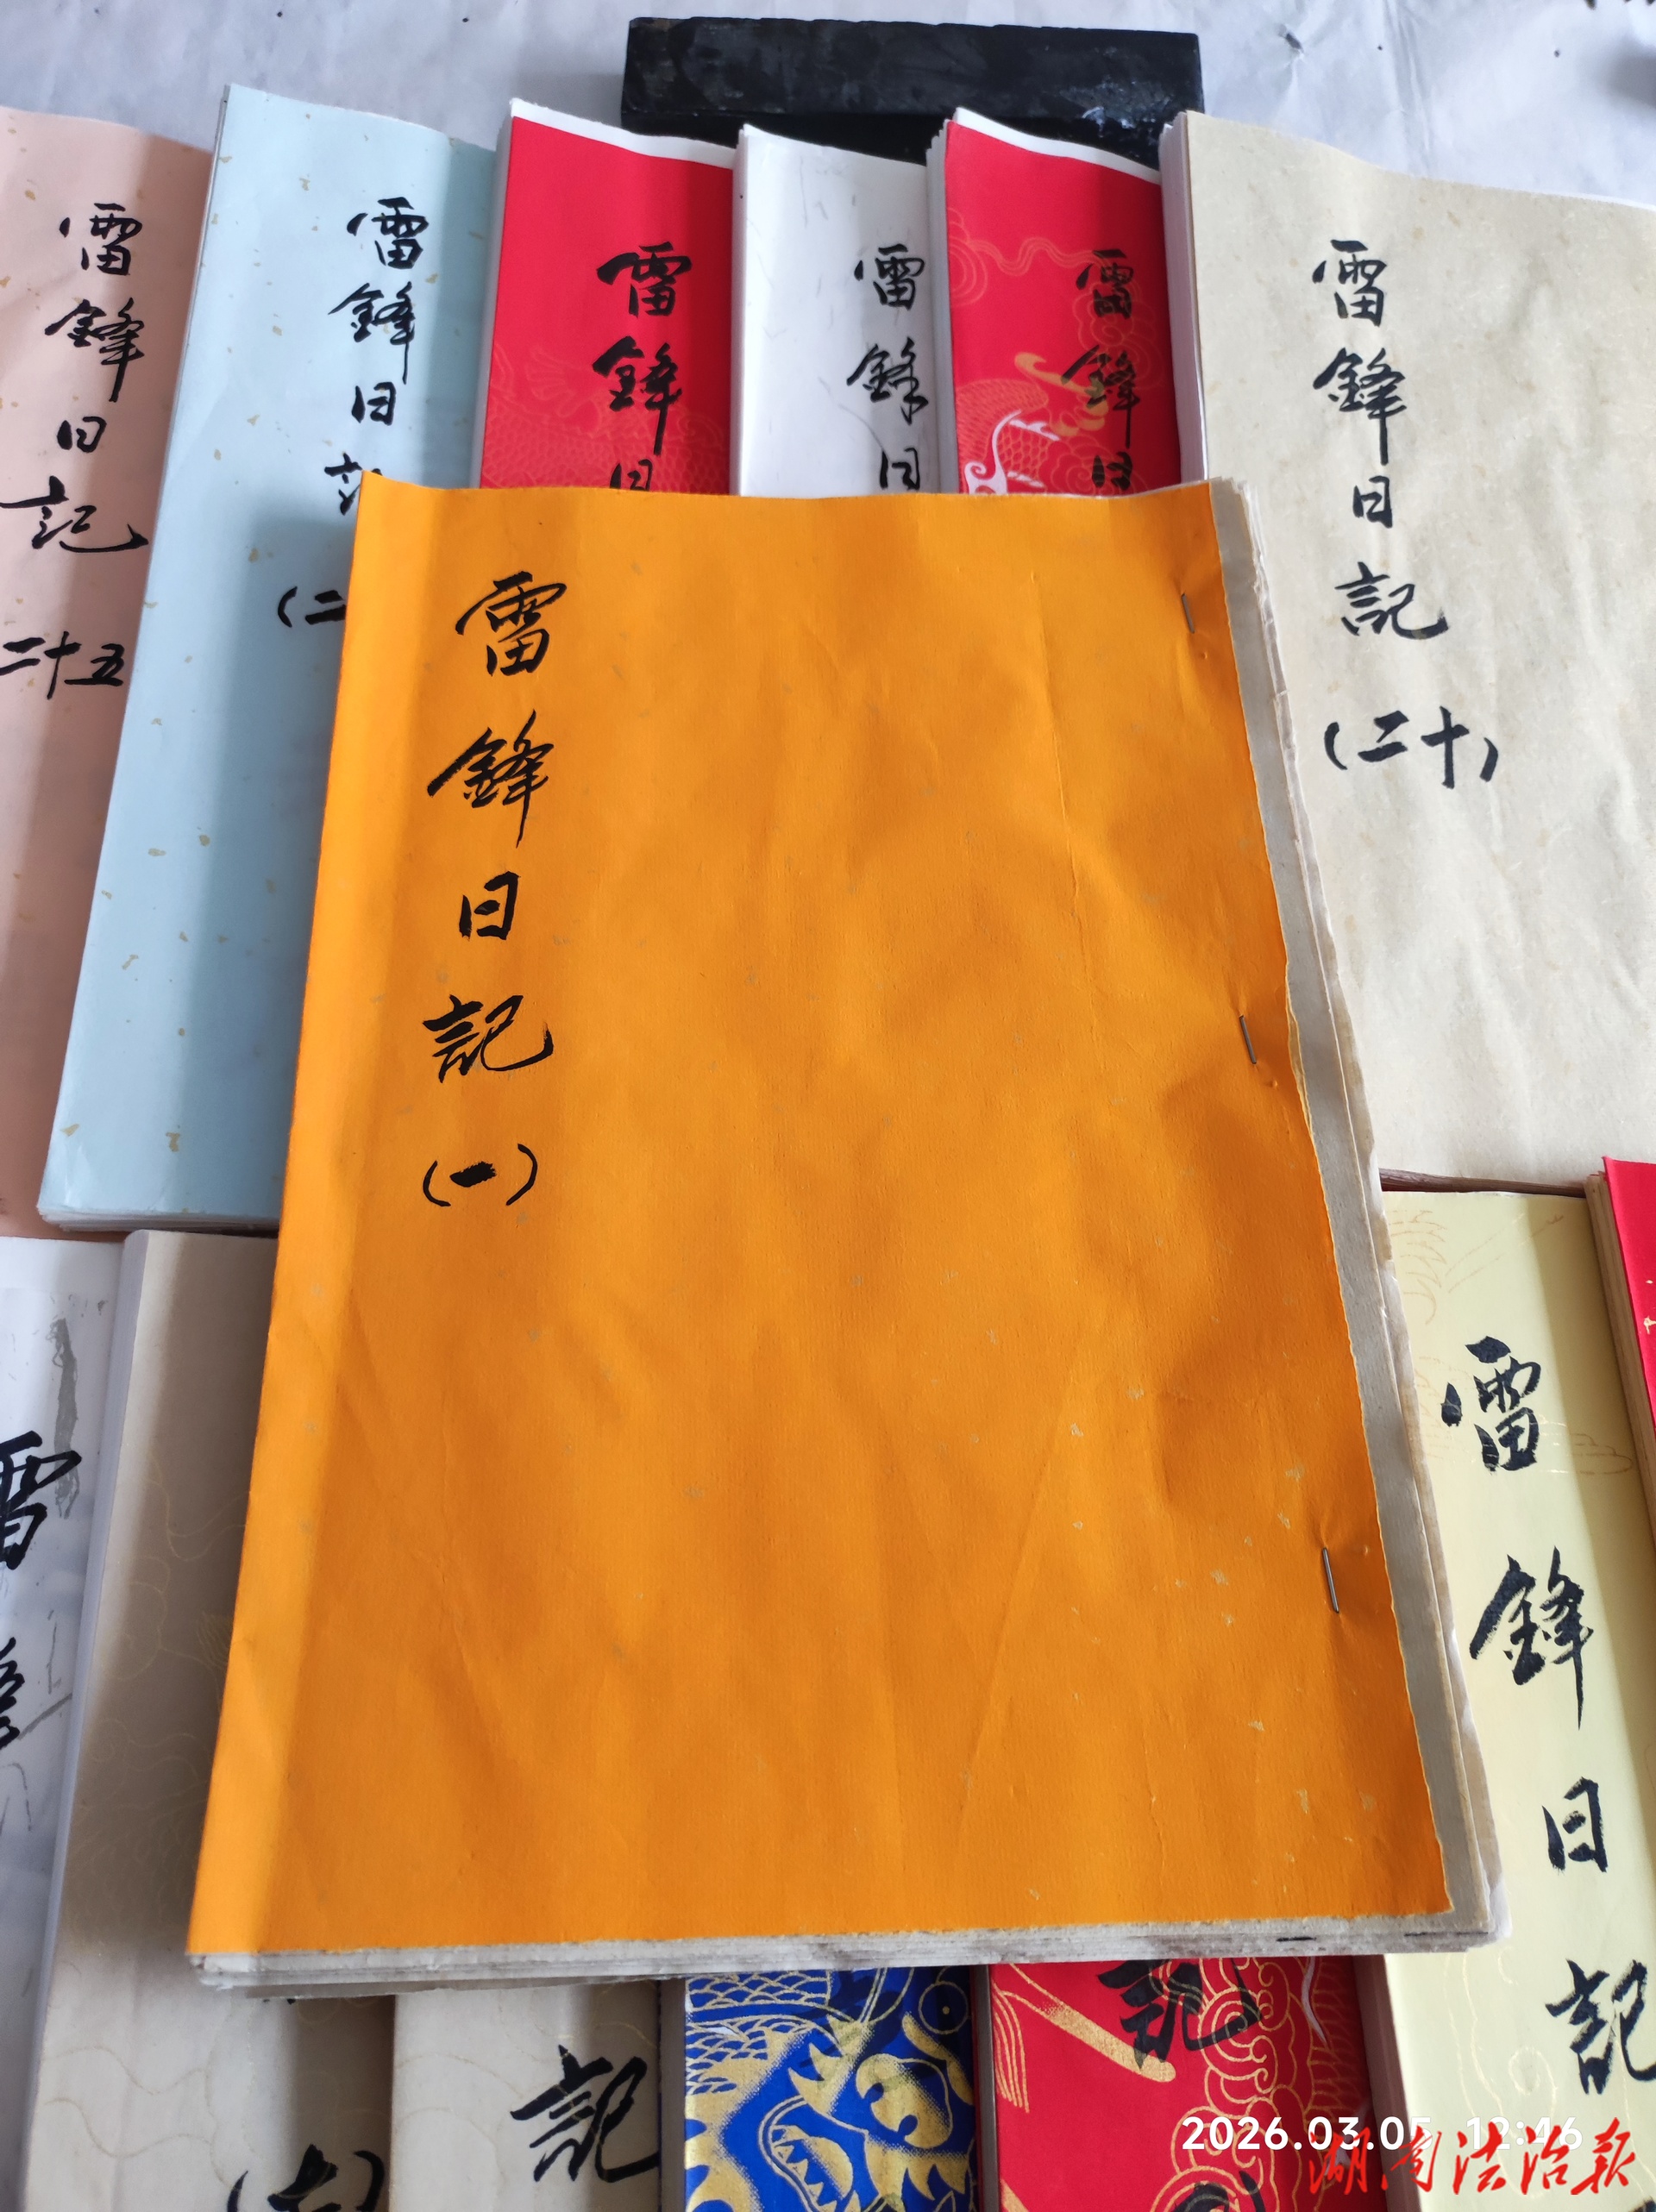 雷鋒日記
二十五
雷鋒日
(二
雷鋒日
雷鋒日
雷鋒日
雷鋒日記
(二十)
雷鋒日記
(一)
雷
雷鋒日記
記
記
2026.03.05 12:46
湖南法治报